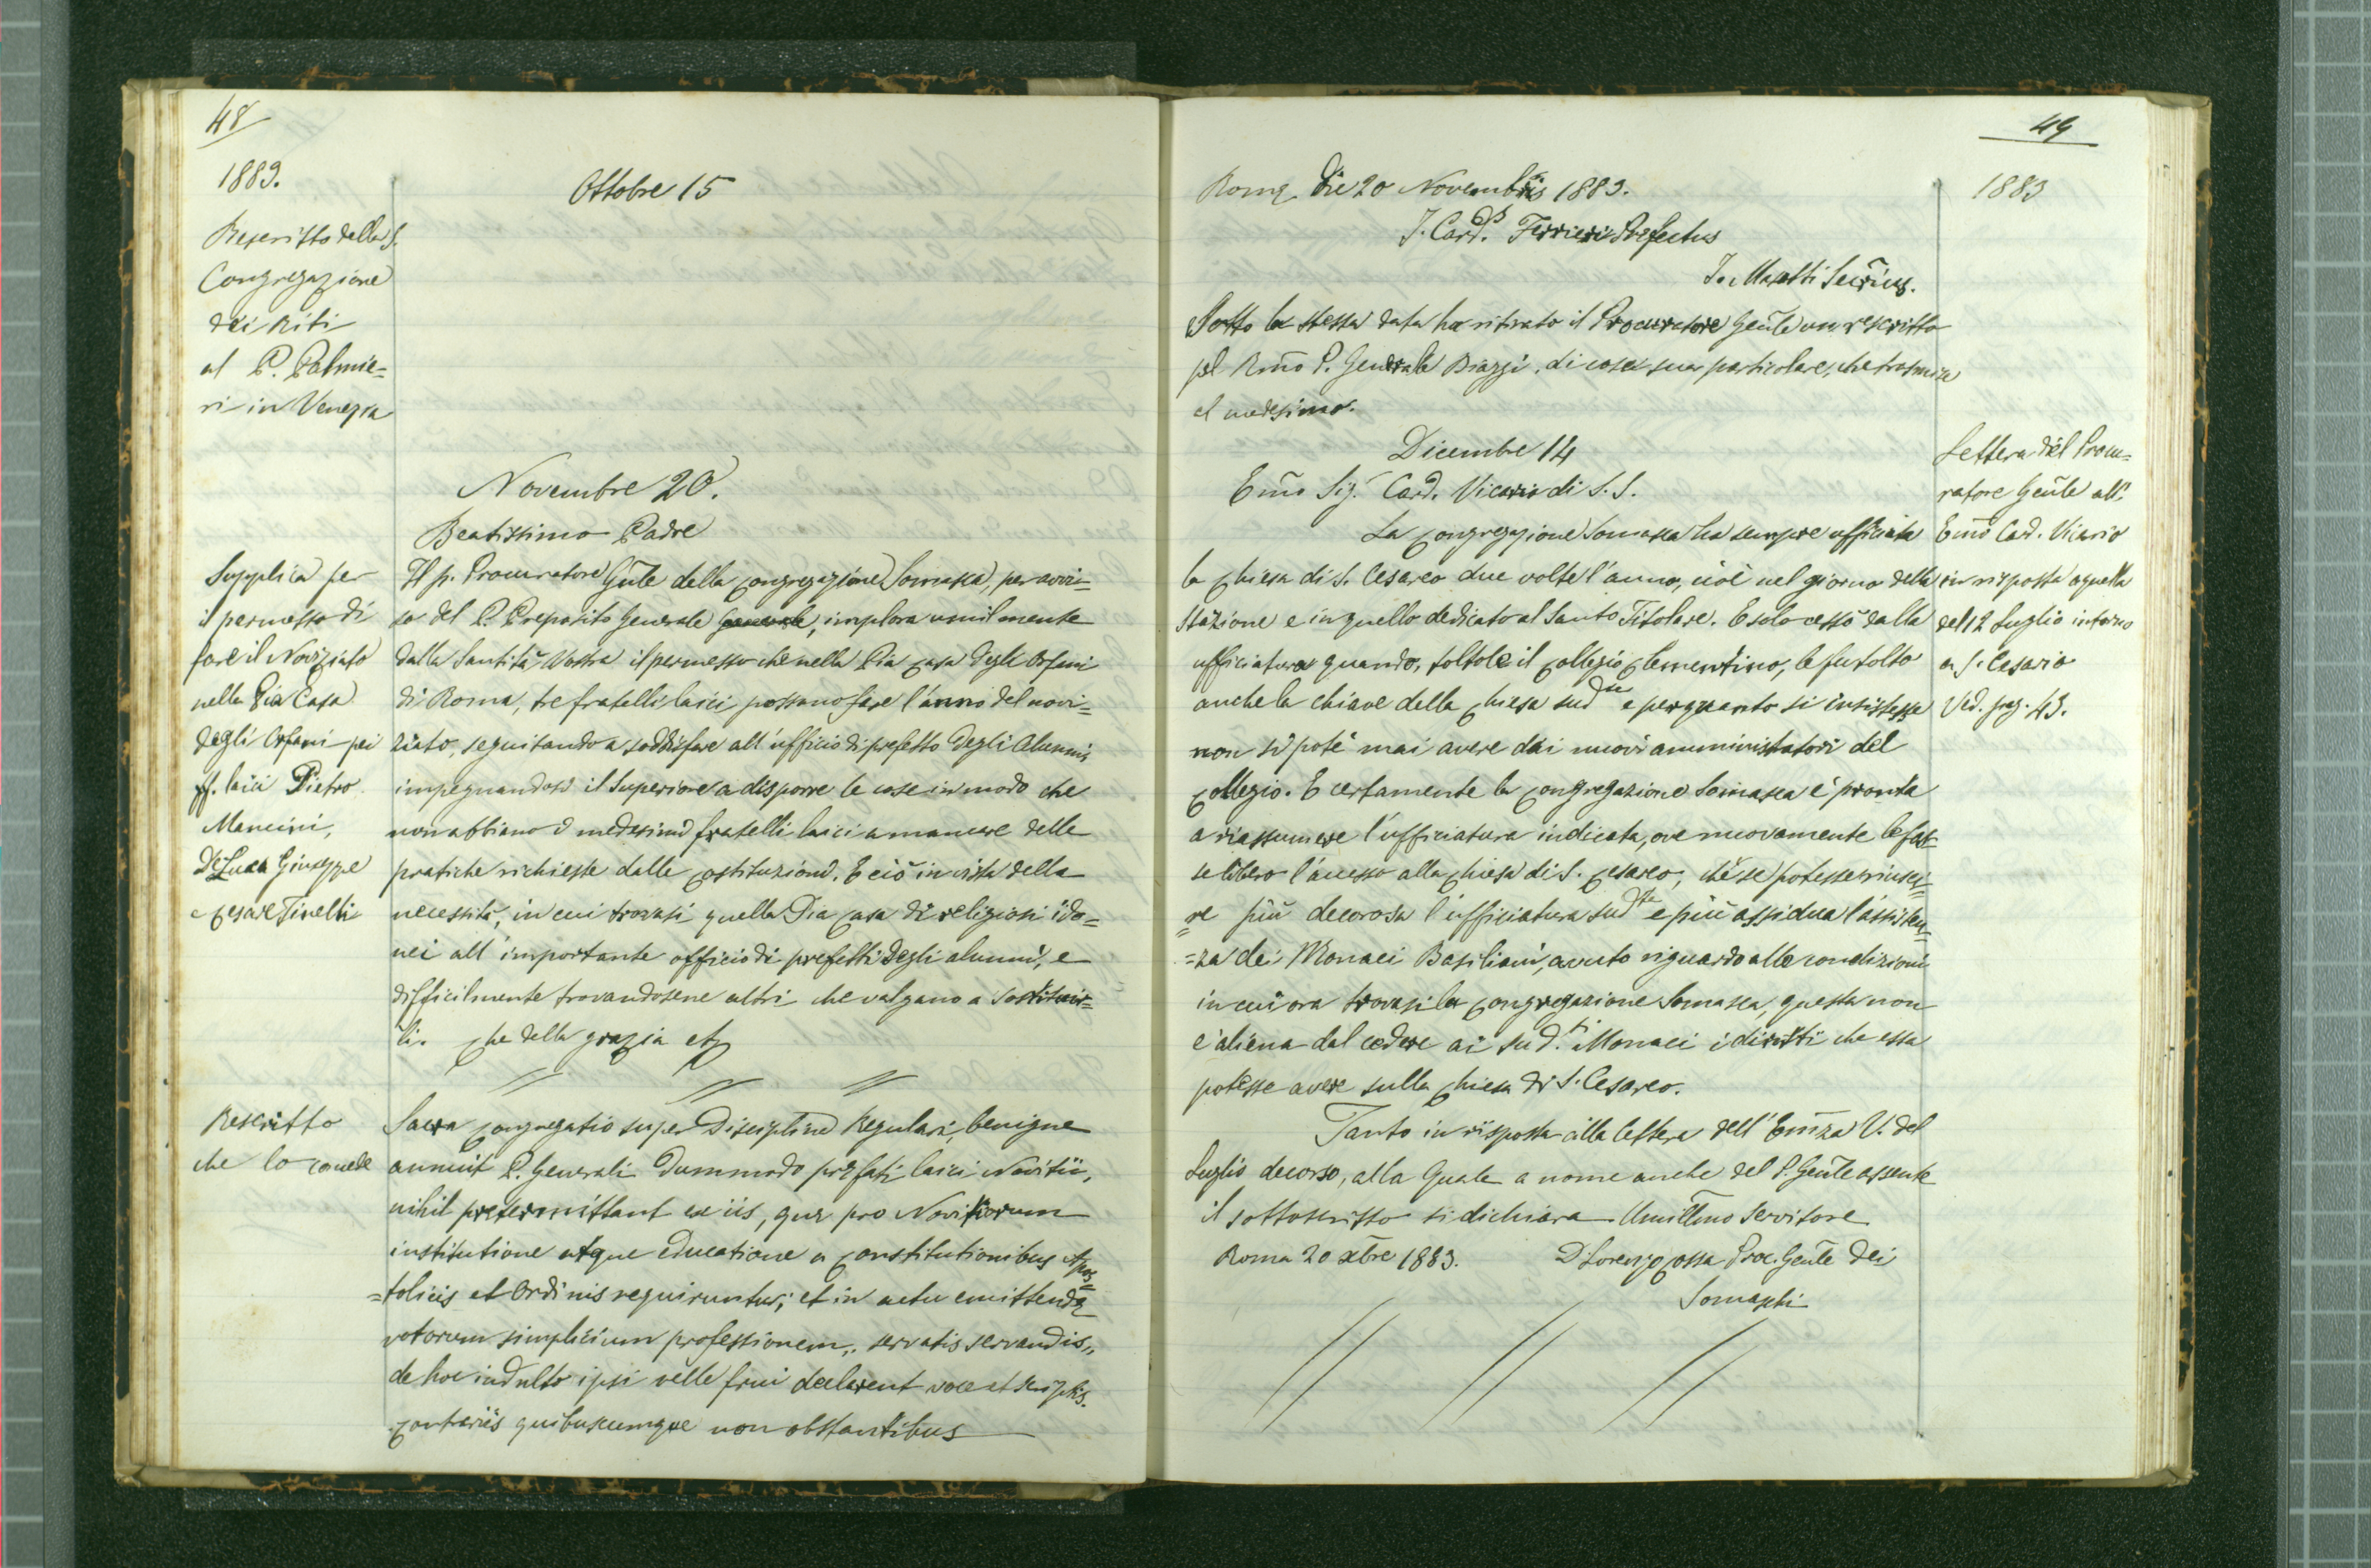 48
1883.
Ottobre 15
Rescritto della S.
Congregazione
dei Riti
al P. Palmie=
ri in Venezia
Novembre 20.
Beatissimo Padre
Supplica per
il permesso di
fare il Noviziato
nella Pia Casa
degli Orfani pei
ff. laici Pietro
Mancini,
De Luca Giuseppe
e Cesare Tinelli
Il p. Procuratore Gñle della Congregazione Somasca, per avvi=
so del P. Preposito Generale, implora umilmente
dalla Santità Vostra il permesso che nella Pia Casa degli Orfani
di Roma, tre fratelli laici possano fare l'anno del novi=
ziato, seguitando a soddisfare all'ufficio di prefetto degli Alunni,
impegnandosi il Superiore a disporre le cose in modo che
non abbiano i medesimi fratelli laici a mancare delle
pratiche richieste dalle Costituzioni. E ciò in vista della
necessità, in cui trovasi quella Pia Casa di religiosi ido=
nei all'importante officio di prefetti degli alunni, e
difficilmente trovandosene altri che valgano a sostituir=
li. Che della grazia etc
Rescritto
che lo concede
Sacra Congregatio super Disciplina Regulari, benigne
annuit P. Generali dummodo præfati laici Novitii,
nihil pretermittant ex iis, quæ pro Novitiorum
institutione atque educatione a Constitutionibus Apos=
=tolicis et Ordinis requiruntur; et in actu emittendæ
votorum simplicium professionem,, servatis servandis,,
de hoc indulto ipsi velle frui declarent voce et scriptis.
Contrariis quibuscumque non obstantibus
49
1883
Romæ die 20 Novembris 1883.
J. Card. Ferrieri Præfectus
Jo. Masotti Secrius.
Sotto la stessa data ha ritirato il Procuratore Geñle un rescritto
pel Rmo P. Generale Biaggi, di cosa sua particolare, che trasmise
al medesimo.
Dicembre 14
Emo Sig. Card. Vicario di S. S.
Lettera del Procu=
ratore Geñle all'
Emo Card. Vicario
in risposta a quella
del 12 Luglio intorno
a S. Cesario
Ved. pag. 43.
La Congregazione Somasca ha sempre ufficiata
la Chiesa di S. Cesareo due volte l'anno, cioè nel giorno della
Stazione e in quello dedicato al Santo Titolare. E solo cessò dalla
ufficiatura quando, toltole il Collegio Clementino, le fu tolto
anche la chiave della Chiesa sud.ta e per quanto si insistesse
non si poté mai avere dai nuovi amministratori del
Collegio. E certamente la Congregazione Somasca è pronta
a riassumere l'ufficiatura indicata, ove nuovamente le fos=
se libero l'accesso alla Chiesa di S. Cesareo, ché se potesse riusci=
=re più decorosa l'ufficiatura sud.ta e più assidua l'assisten=
=za dei Monaci Basiliani, avuto riguardo alle condizioni
in cui ora trovasi la Congregazione Somasca, questa non
è aliena dal cedere ai sud.ti Monaci i diritti che essa
potesse avere sulla Chiesa di S. Cesareo.
Tanto in risposta alla lettera dell'Emza V. del
Luglio decorso, alla quale a nome anche del P. Geñle assente
il sottoscritto si dichiara Umillmo Servitore
Roma 20 xbre 1883. D Lorenzo Cossa Proc. Geñle dei
Somaschi